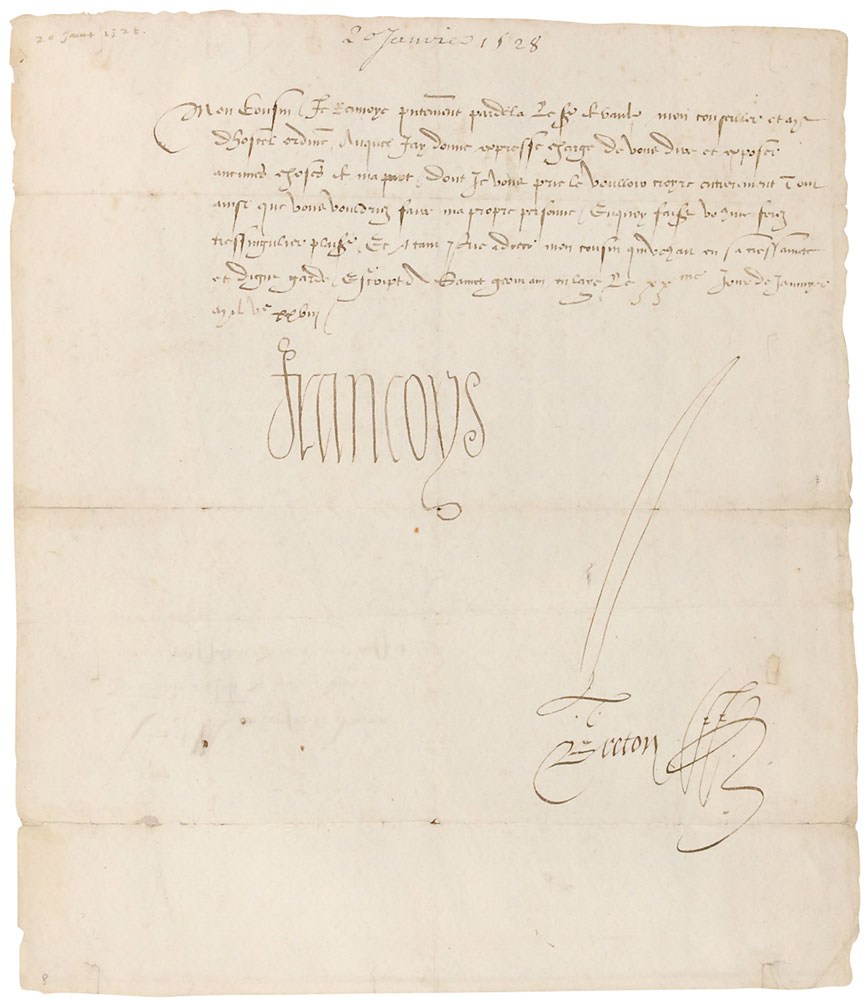 20 Janv 1528.
20 Janvier 1528
Mon Cousin Je Renvoye pntement pardela Le sr de vaulx mon conseiller et me
dhostel ordinre Auquel Jay donne expresse charge de vous dire et exposer
aucunes choses de ma part dont Je vous prie le voulloir croyre entierement Tout
ainsi que vous vouldriez faire ma propre personne Enquoy faisant vous me ferez
tressingulier plaisr Et a tant Je prie a dieu mon cousin qui vous ait en sa tressaincte
et digne garde Escript a Sainct germain en laye Le xxme Jour de Janvyer
mil vc xxviii
Francoys
Breton
8